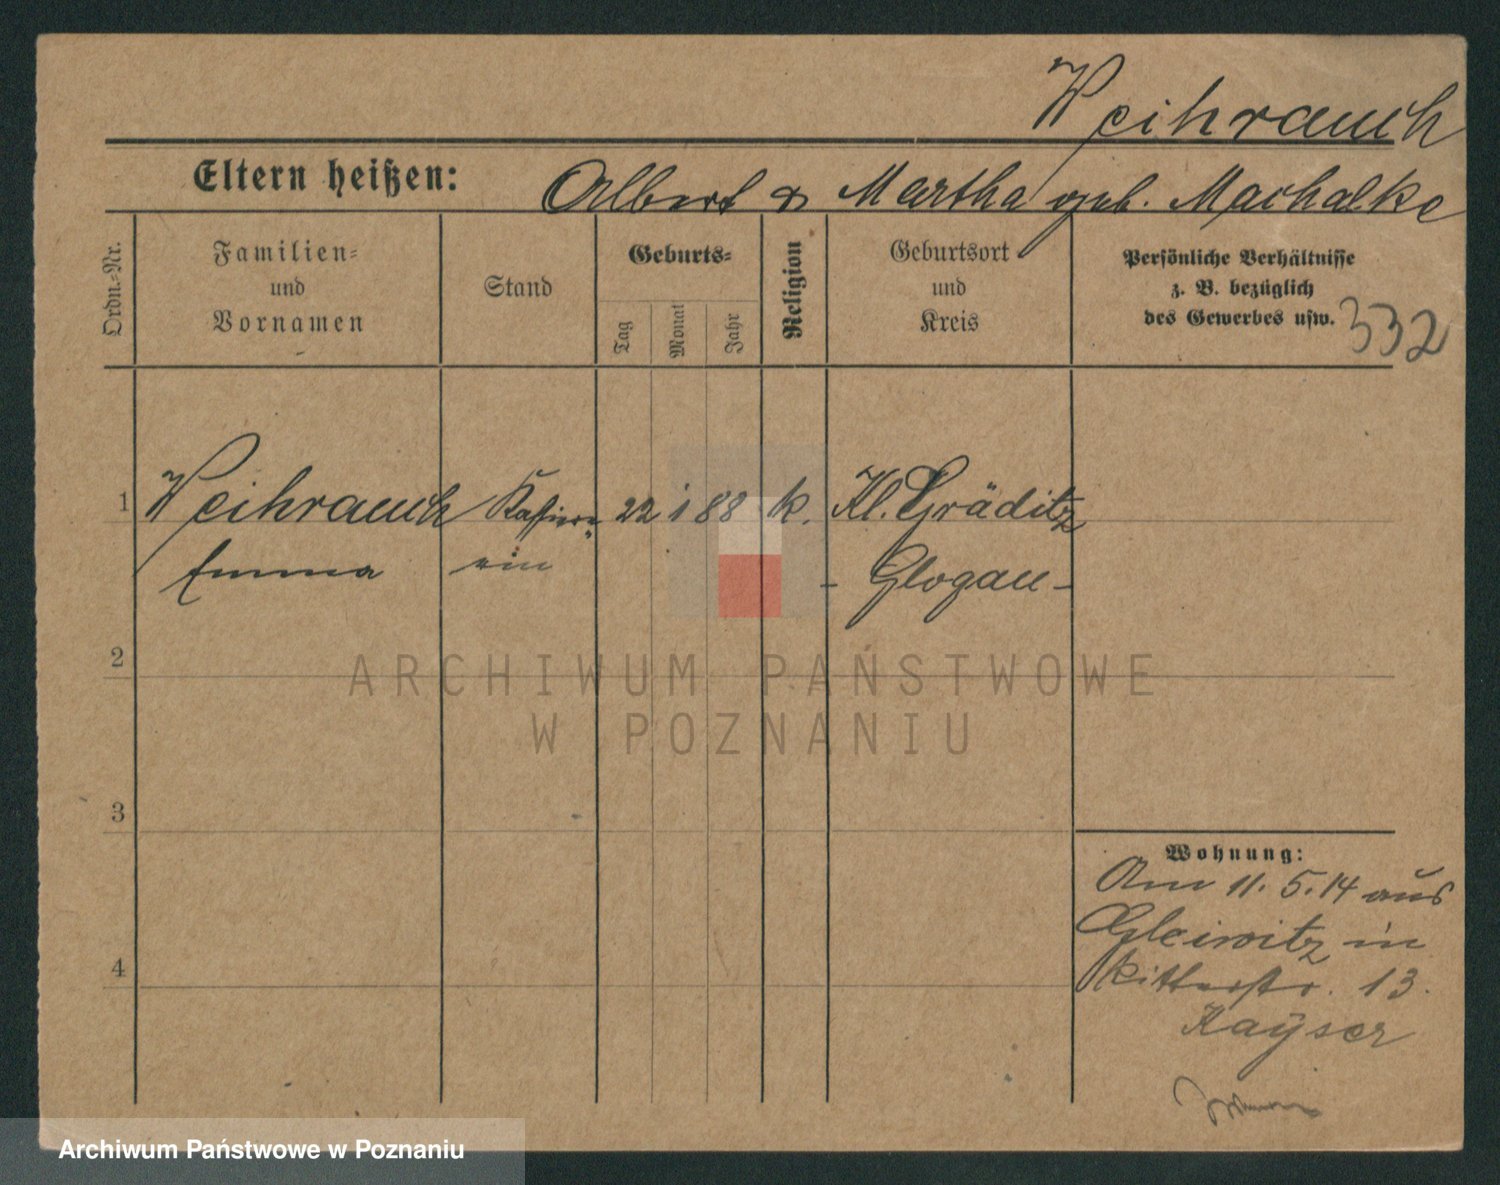 Weihrauch
Eltern heißen: Albert & Martha geb. Machalke
Ordn.-Nr.
Familien-
und
Vornamen
Stand
Geburts-
Tag
Monat
Jahr
Religion
Geburtsort
und
Kreis
Persönliche Verhältnisse
z. B. bezüglich
des Gewerbes usw.
332
1 Weihrauch Kassier- 22 1 88 k. Kl. Gräditz
Emma erin - Glogau -
2
ARCHIWUM PAŃSTWOWE
W POZNANIU
3
Wohnung:
Am 11. 5. 14 aus
Gleiwitz in
4
Ritterstr. 13.
Kayser
Archiwum Państwowe w Poznaniu